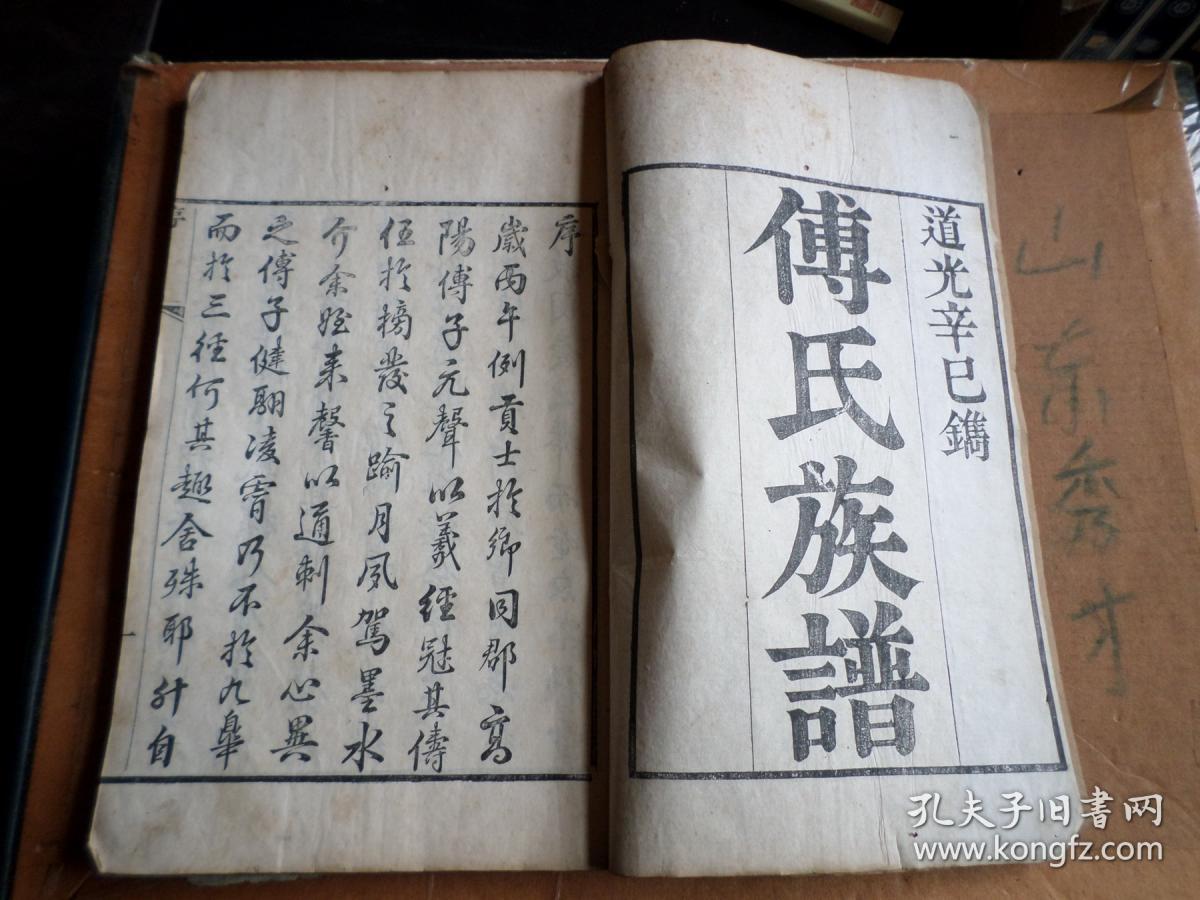 道光辛巳鐫
傅氏族譜
序
歲丙午例貢士於鄉同郡高
陽傅子元聲以羲經冠其儔
伍於榜發之踰月夙駕墨水
介余姪来馨以通刺余心異
之傅子健翮凌霄乃不於九皋
而於三徑何其趣舍殊耶升自
山東秀才
孔夫子旧书网
www.kongfz.com